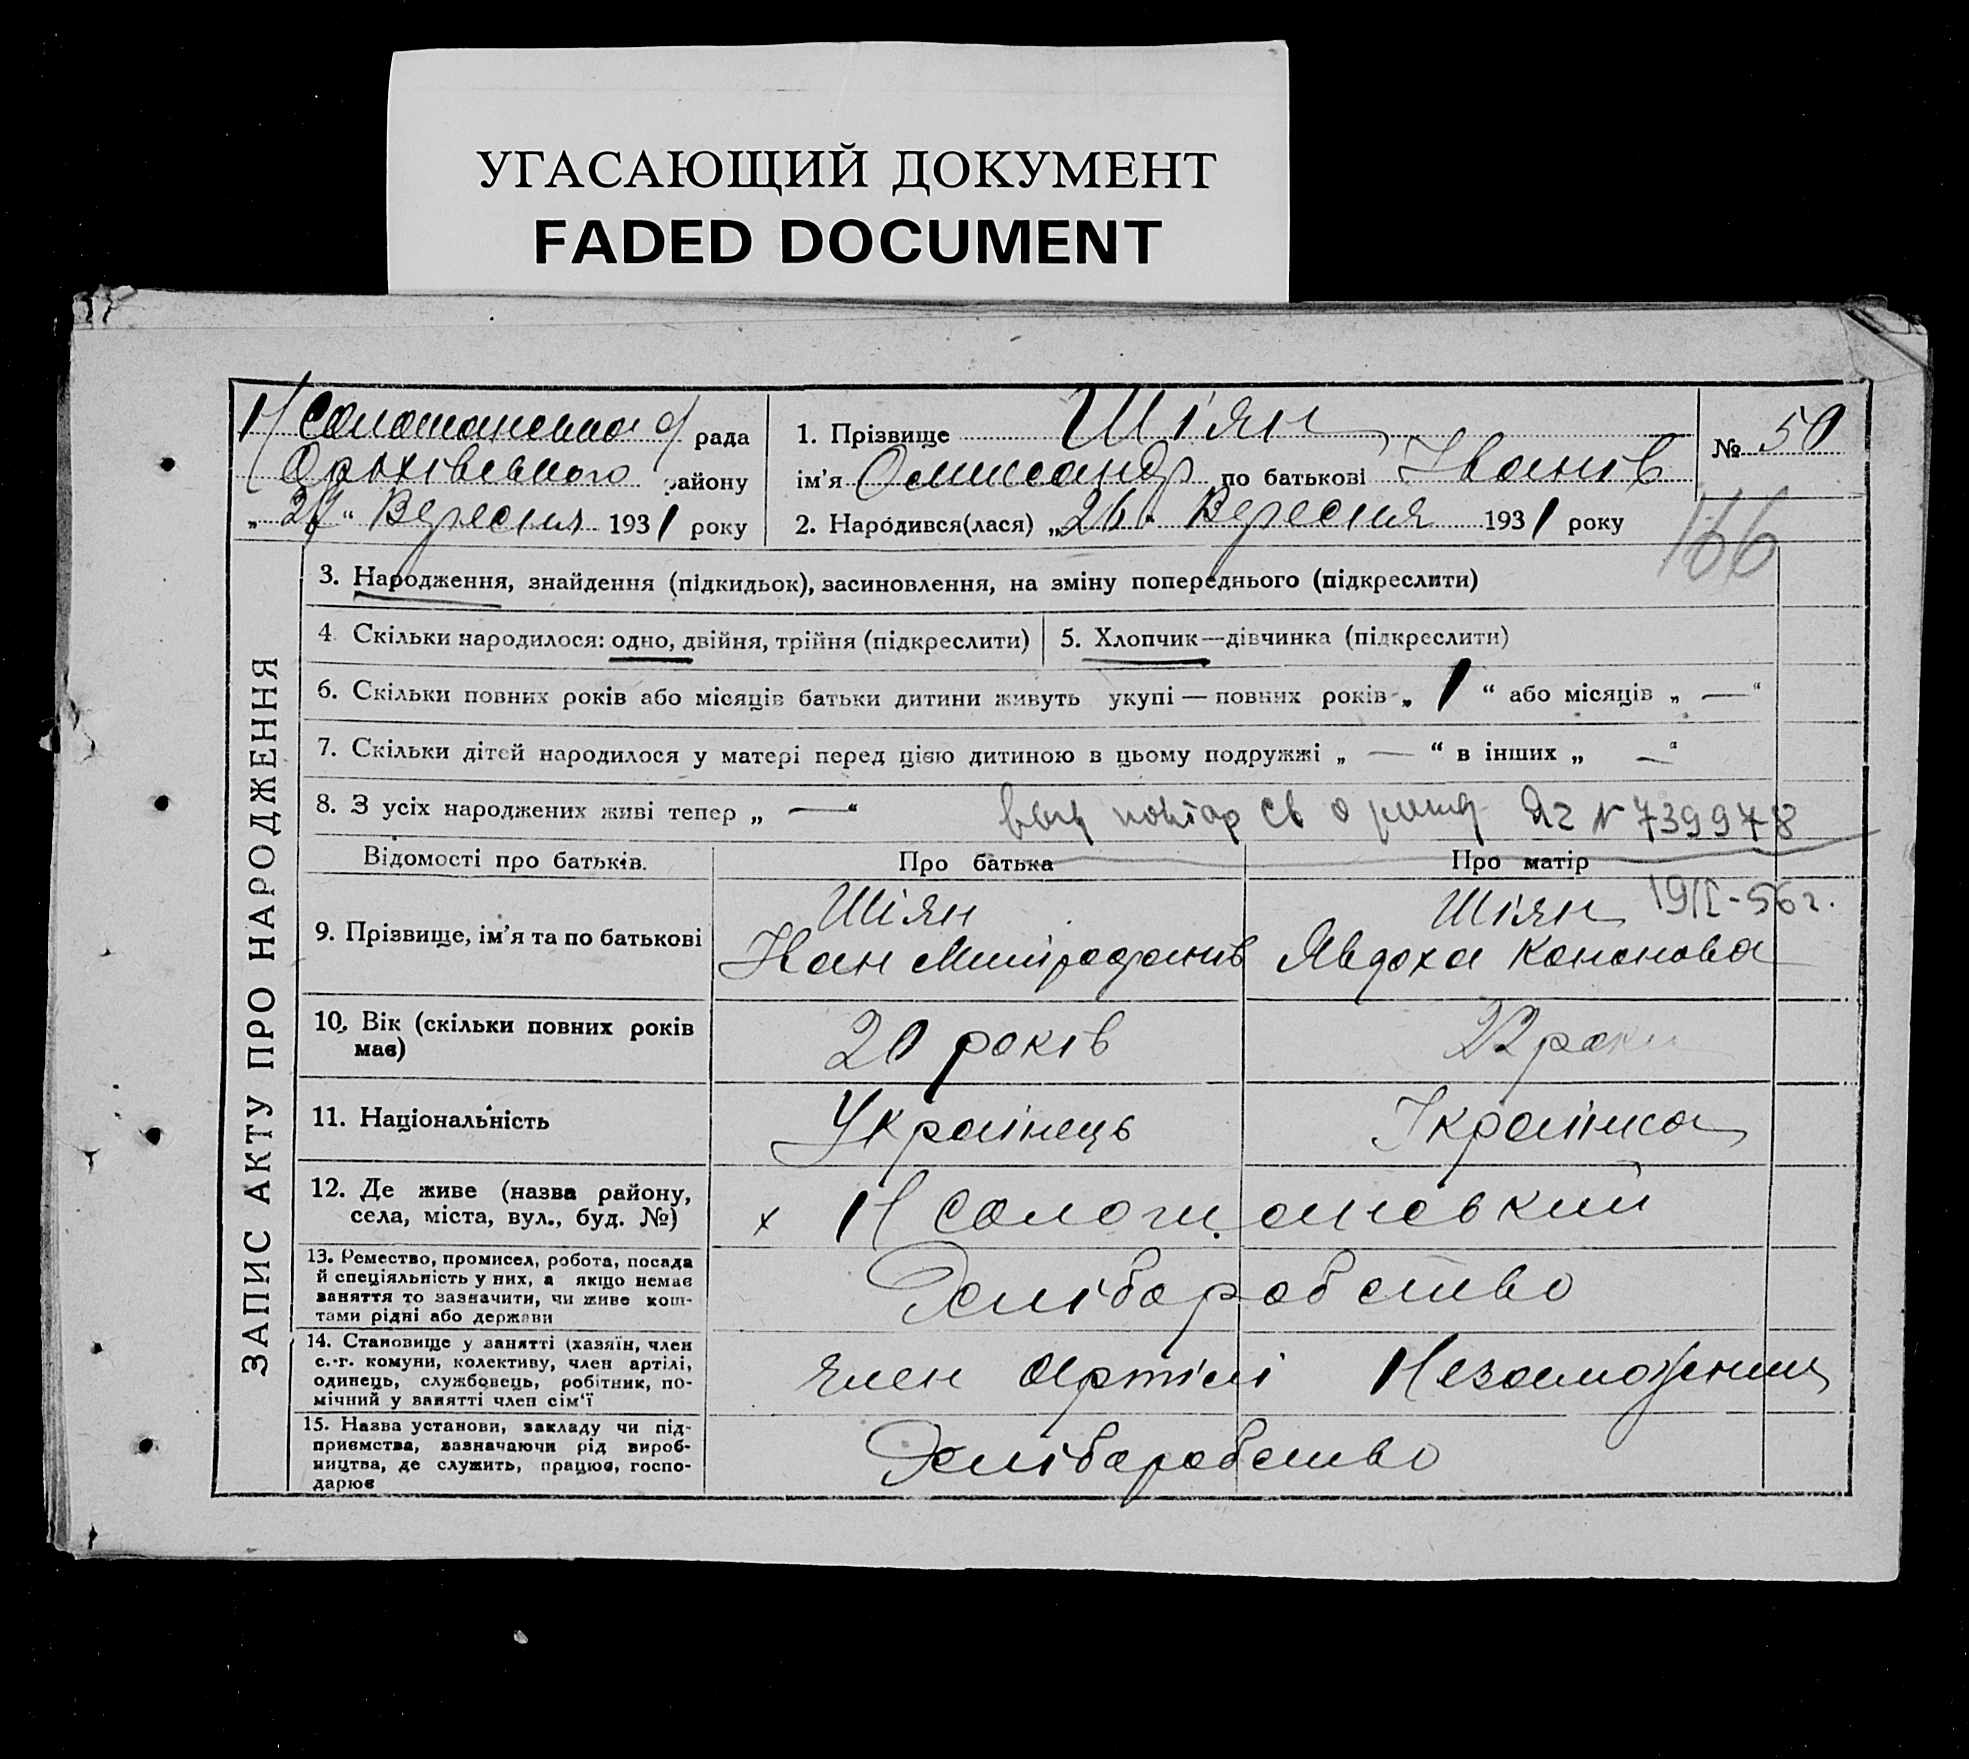 УГАСАЮЩИЙ ДОКУМЕНТ
FADED DOCUMENT
ЗАПИС АКТУ ПРО НАРОДЖЕННЯ
рада
Оріхівського району
„ “ Вересня 1931 року
1. Прізвище Шіян
ім’я Олександр по батькові Іванів
2. Народився(лася) „26“ Вересня 1931 року
№ 50
166
3. Народження, знайдення (підкидьок), засиновлення, на зміну попереднього (підкреслити)
4 Скільки народилося: одно, двійня, трійня (підкреслити)
5. Хлопчик—дівчинка (підкреслити)
6. Скільки повних років або місяців батьки дитини живуть укупі — повних років „ 1 “ або місяців „ — “
7. Скільки дітей народилося у матері перед цією дитиною в цьому подружжі „ — “ в інших „ — “
8. З усіх народжених живі тепер „ — “
повтор св о рожд ЯГ № 739978
19/I-56 г.
Відомості про батьків.
Про батька
Про матір
9. Прізвище, ім’я та по батькові
Шіян
Іван Митрофанів
Шіян
Явдоха Кононова
10. Вік (скільки повних років
має)
20 років
22 роки
11. Національність
Українець
Українка
12. Де живе (назва району,
села, міста, вул., буд. №)
х Н Солошанський
13. Ремество, промисел, робота, посада
й спеціяльність у них, а якщо немає
заняття то зазначити, чи живе кош-
тами рідні або держави
Хліборобство
14. Становище у занятті (хазяїн, член
с.-г. комуни, колективу, член артілі,
одинець, службовець, робітник, по-
мічний у занятті член сім‘ї
член Артілі Незаможник
15. Назва установи, закладу чи під-
приємства, зазначаючи рід вироб-
ництва, де служить, працює, госпо-
дарює
Хліборобство